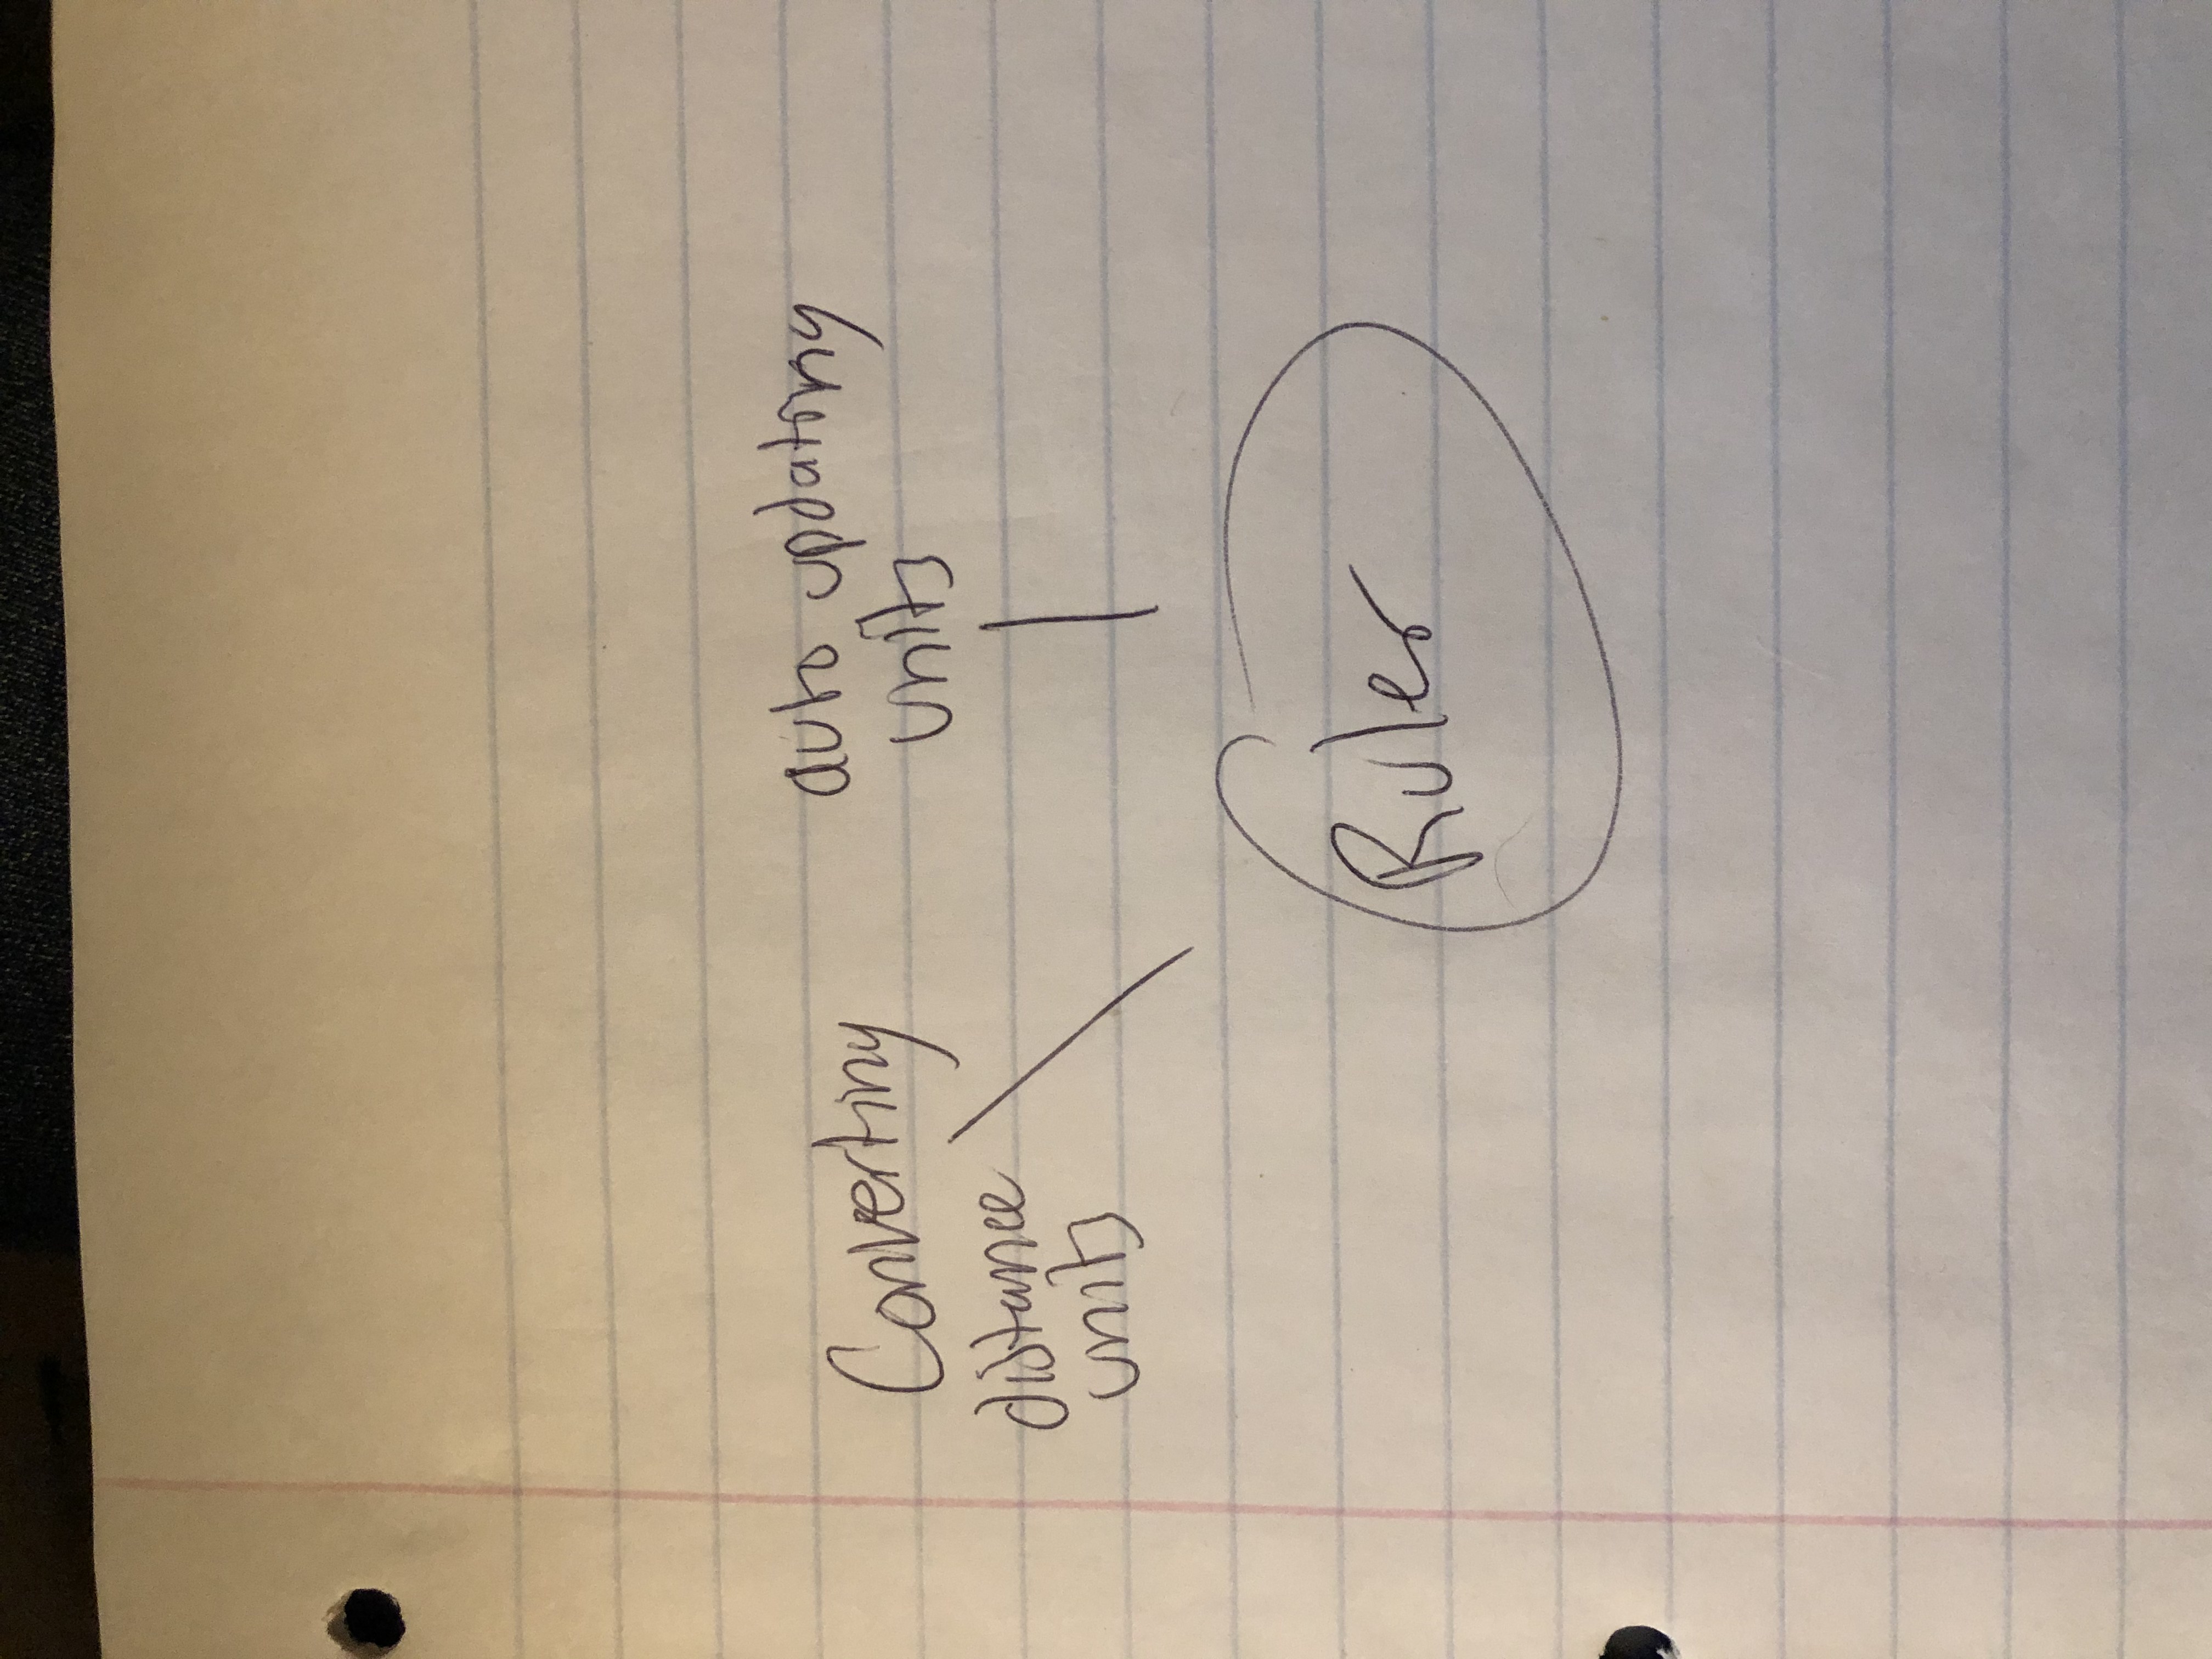 Converting
distance
units
auto updating
units
Ruler